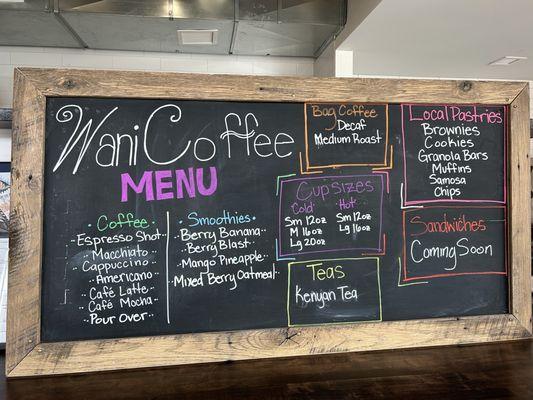 Wani Coffee
MENU
Coffee
Espresso Shot
Macchiato
Cappuccino
Americano
Café Latte
Café Mocha
Pour Over
Smoothies
Berry Banana
Berry Blast
Mango Pineapple
Mixed Berry Oatmeal
Bag Coffee
Decaf
Medium Roast
Cup Sizes
Cold Hot
Sm 12oz Sm 12oz
M 16oz Lg 16oz
Lg 20oz
Teas
Kenyan Tea
Local Pastries
Brownies
Cookies
Granola Bars
Muffins
Samosa
Chips
Sandwiches
Coming Soon